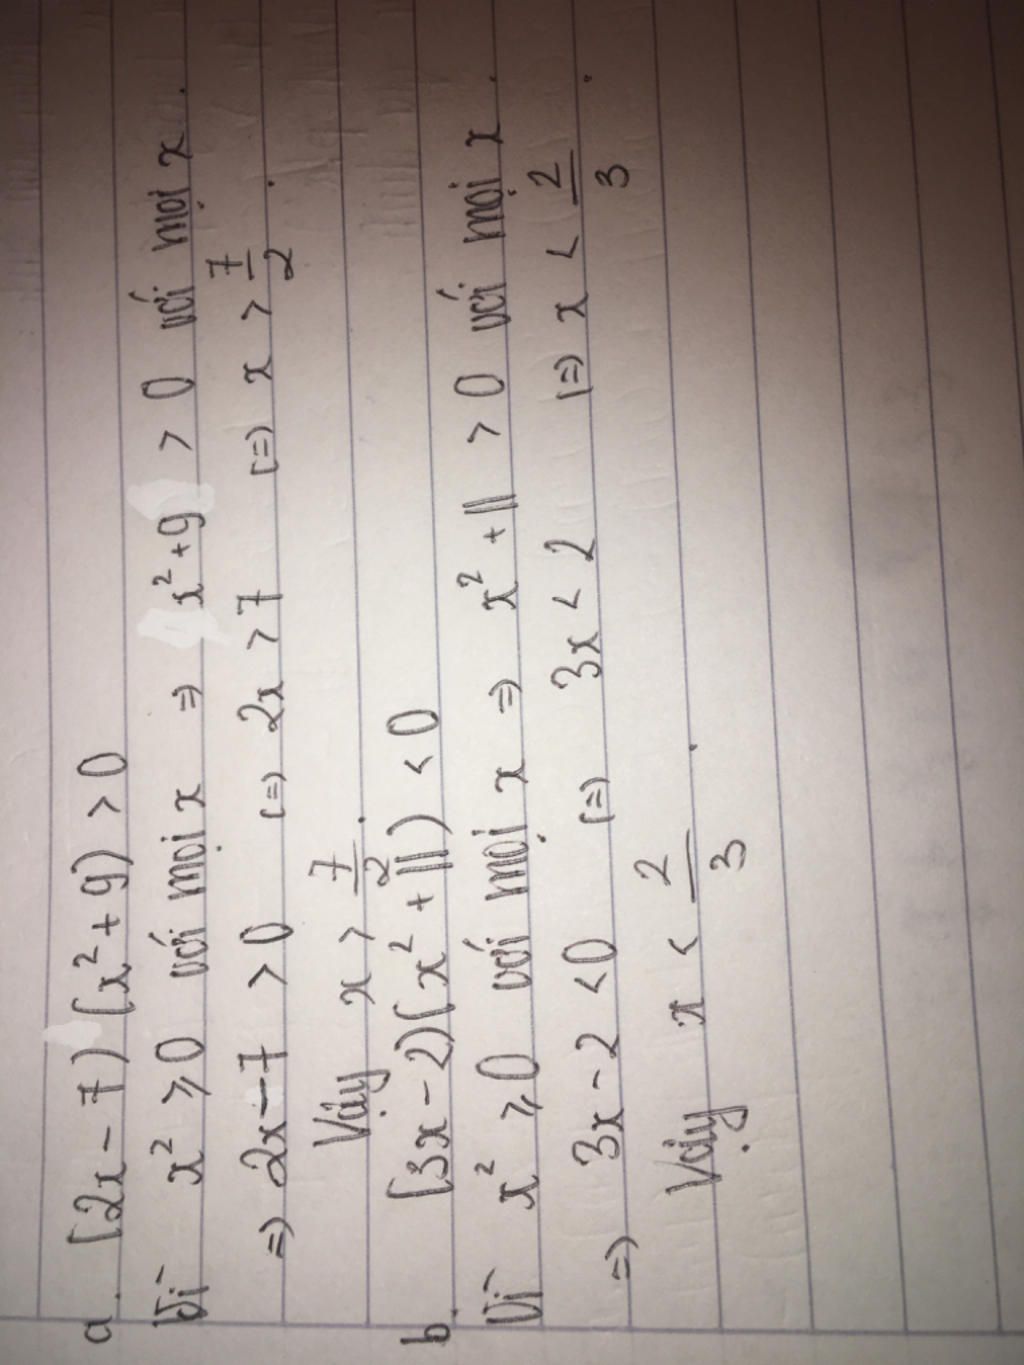 a. (2x - 7) (x² + 9) > 0
Vì x² ⩾ 0 với mọi x => x² + 9 > 0 với mọi x.
=> 2x - 7 > 0 (=) 2x > 7 (=) x > 7/2.
Vậy x > 7/2.
b. (3x - 2) (x² + 11) < 0
Vì x² ⩾ 0 với mọi x => x² + 11 > 0 với mọi x.
=> 3x - 2 < 0 (=) 3x < 2 (=) x < 2/3.
Vậy x < 2/3.